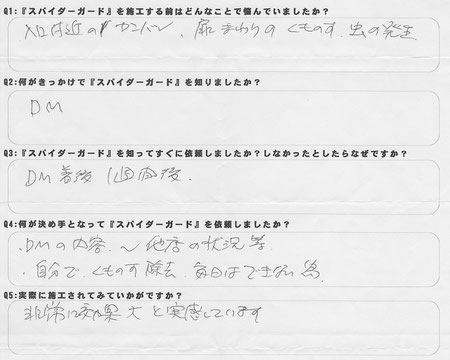 Q1:『スパイダーガード』を施工する前はどんなことで悩んでいましたか?
入口付近のカンバン、扉まわりのくものす、虫の発生
Q2:何がきっかけで『スパイダーガード』を知りましたか?
DM
Q3:『スパイダーガード』を知ってすぐに依頼しましたか?しなかったとしたらなぜですか?
DM着後 1週間後.
Q4:何が決め手となって『スパイダーガード』を依頼しましたか?
.DMの内容 〜他店の状況等
・自分でくものす除去 毎日はできない為.
Q5:実際に施工されてみていかがですか?
非常に効果大と実感しています